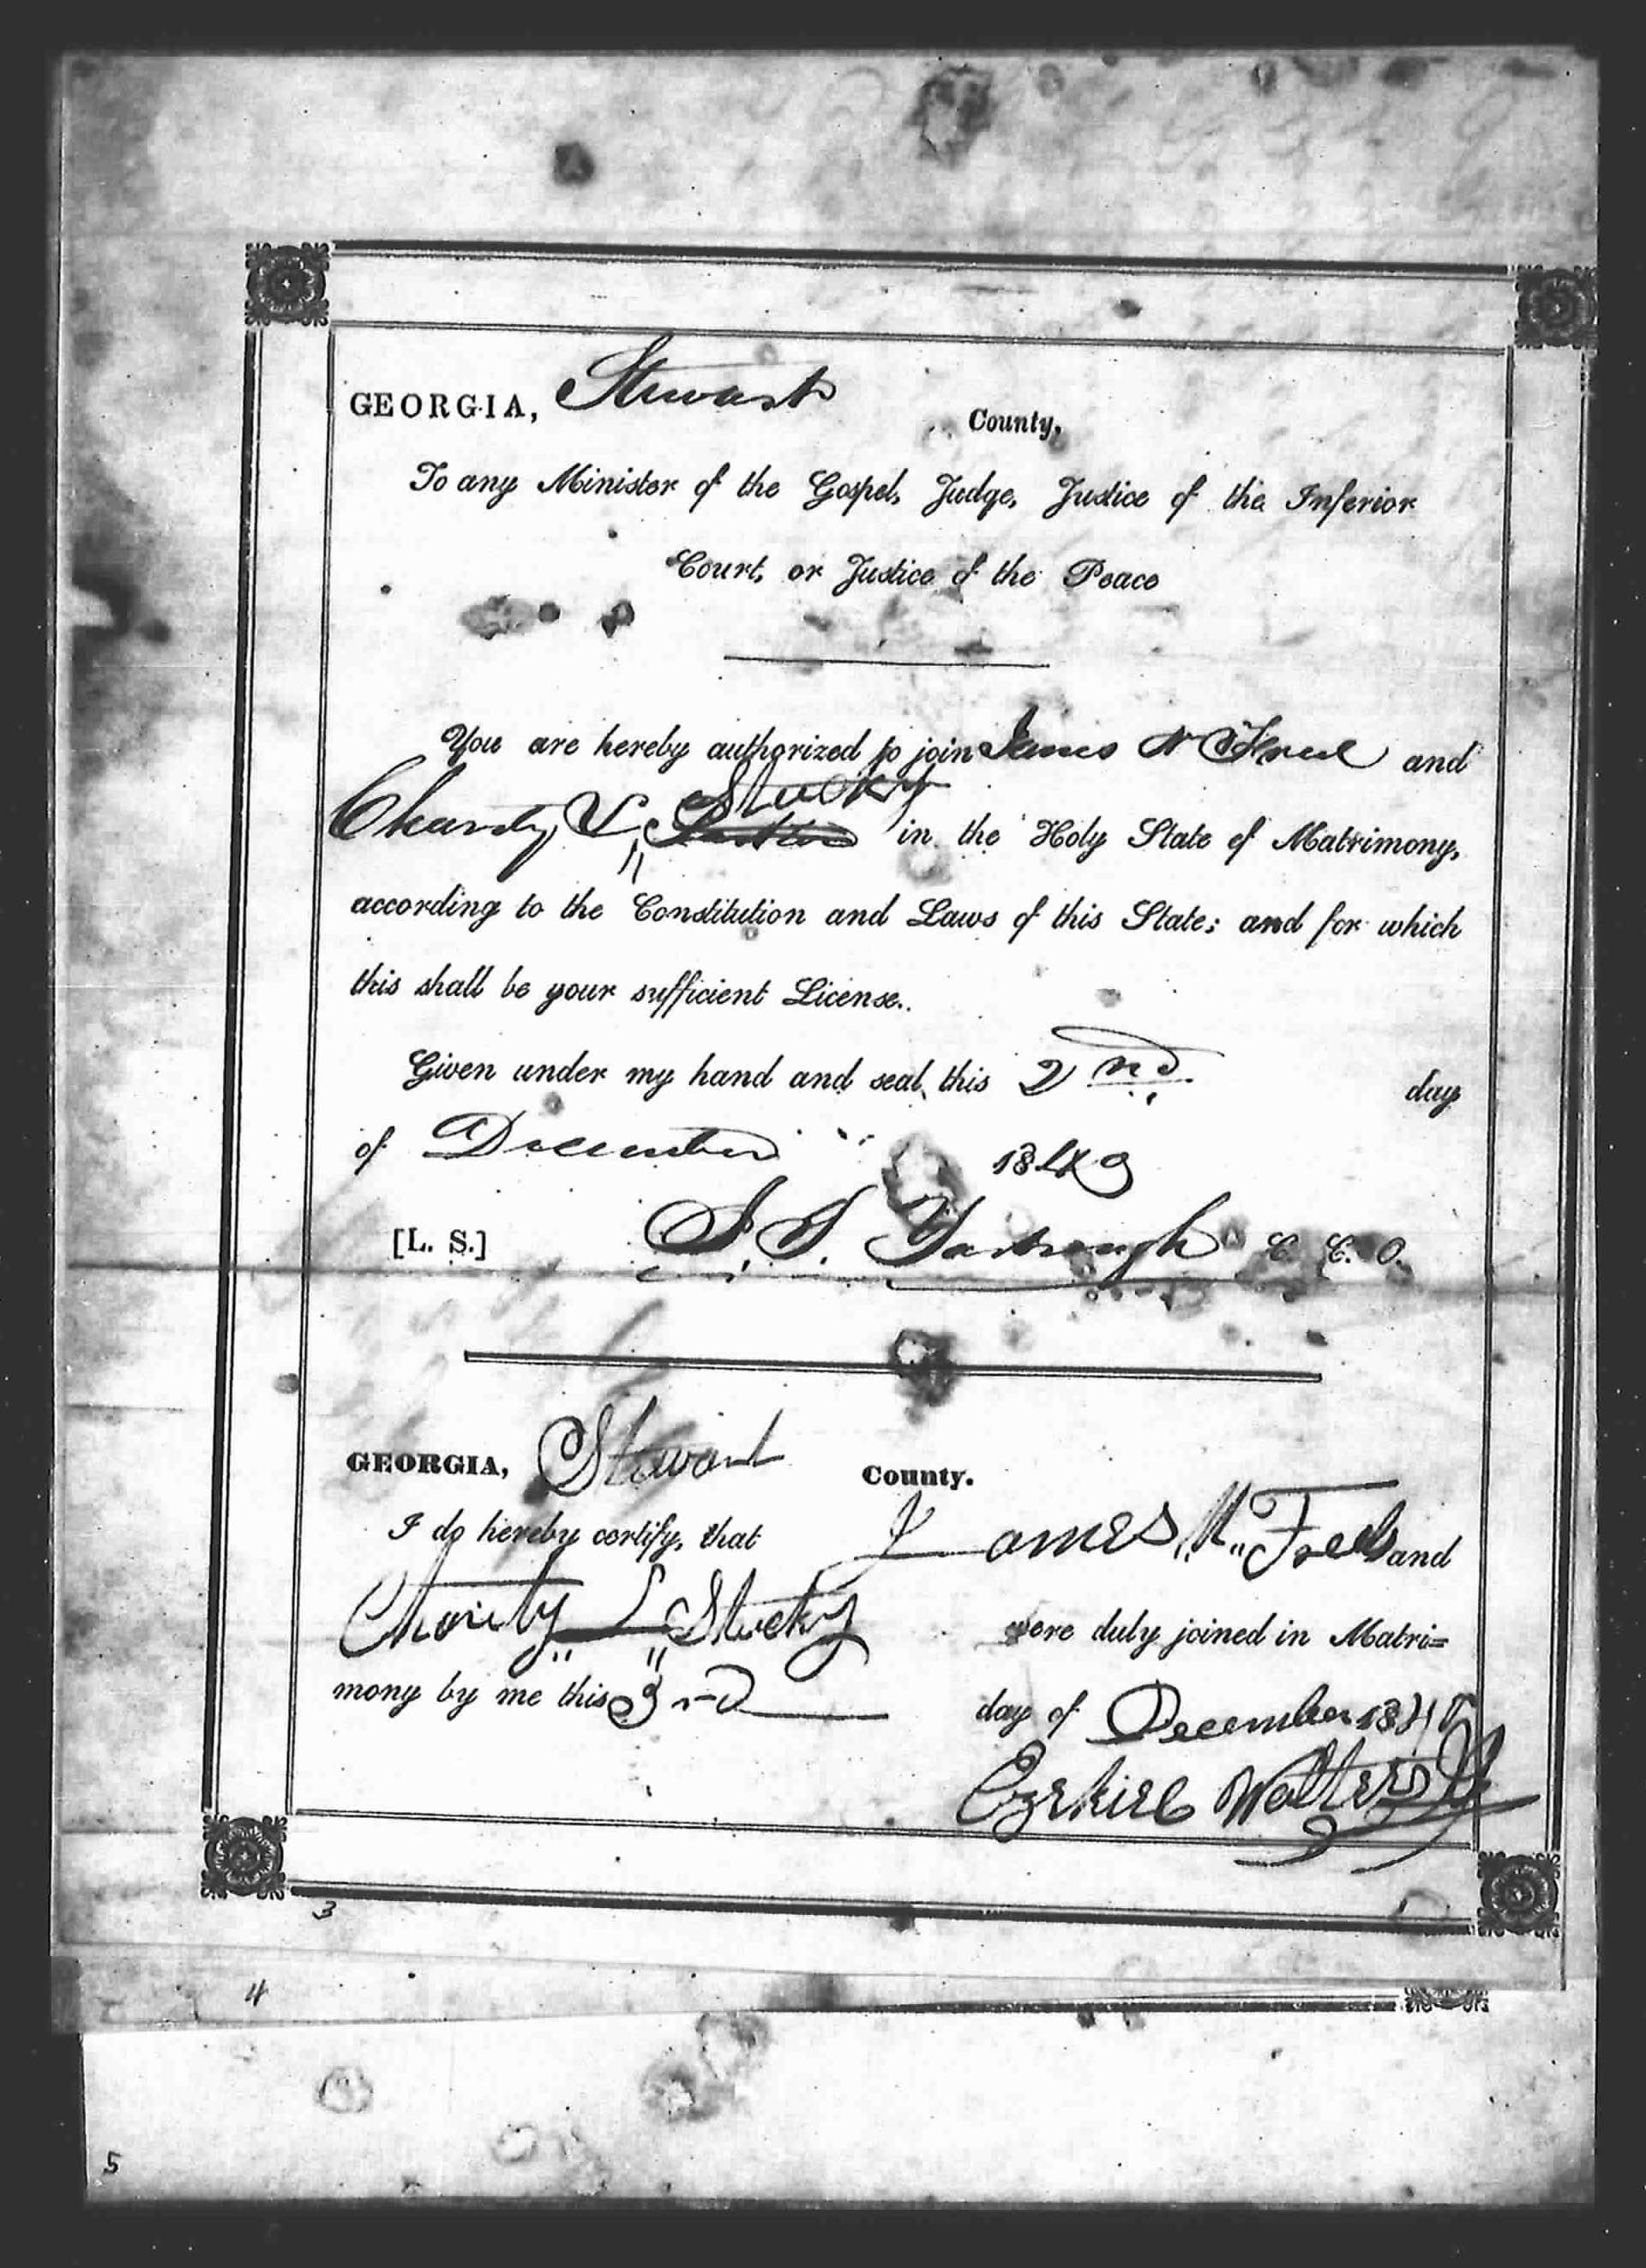 GEORGIA, Stewart County,
To any Minister of the Gospel, Judge, Justice of the Inferior
Court, or Justice of the Peace
You are hereby authorized to join James N and
Stucky
Charity L in the Holy State of Matrimony,
according to the Constitution and Laws of this State; and for which
this shall be your sufficient License.
Given under my hand and seal, this 2nd day
of December 1849
[L. S.] S. S. Yarbrough C. C. O.
GEORGIA, Stewart County.
I do hereby certify, that James N. and
Charity L Stucky were duly joined in Matri=
mony by me this day of December 184
Ezekiel Walters
3
4
5